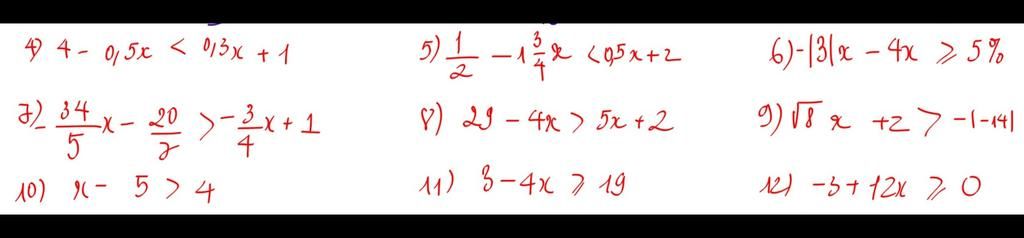 4) 4 - 0,5x < 0,3x + 1 5) 1/2 - 1 3/4 x < 0,5x + 2 6) -|3|x - 4x ⩾ 5%
7) 34/5 x - 20/7 > -3/4 x + 1 8) 29 - 4x > 5x + 2 9) √8 x + 2 > -|-14|
10) x - 5 > 4 11) 3 - 4x ⩾ 19 12) -3 + 12x ⩾ 0